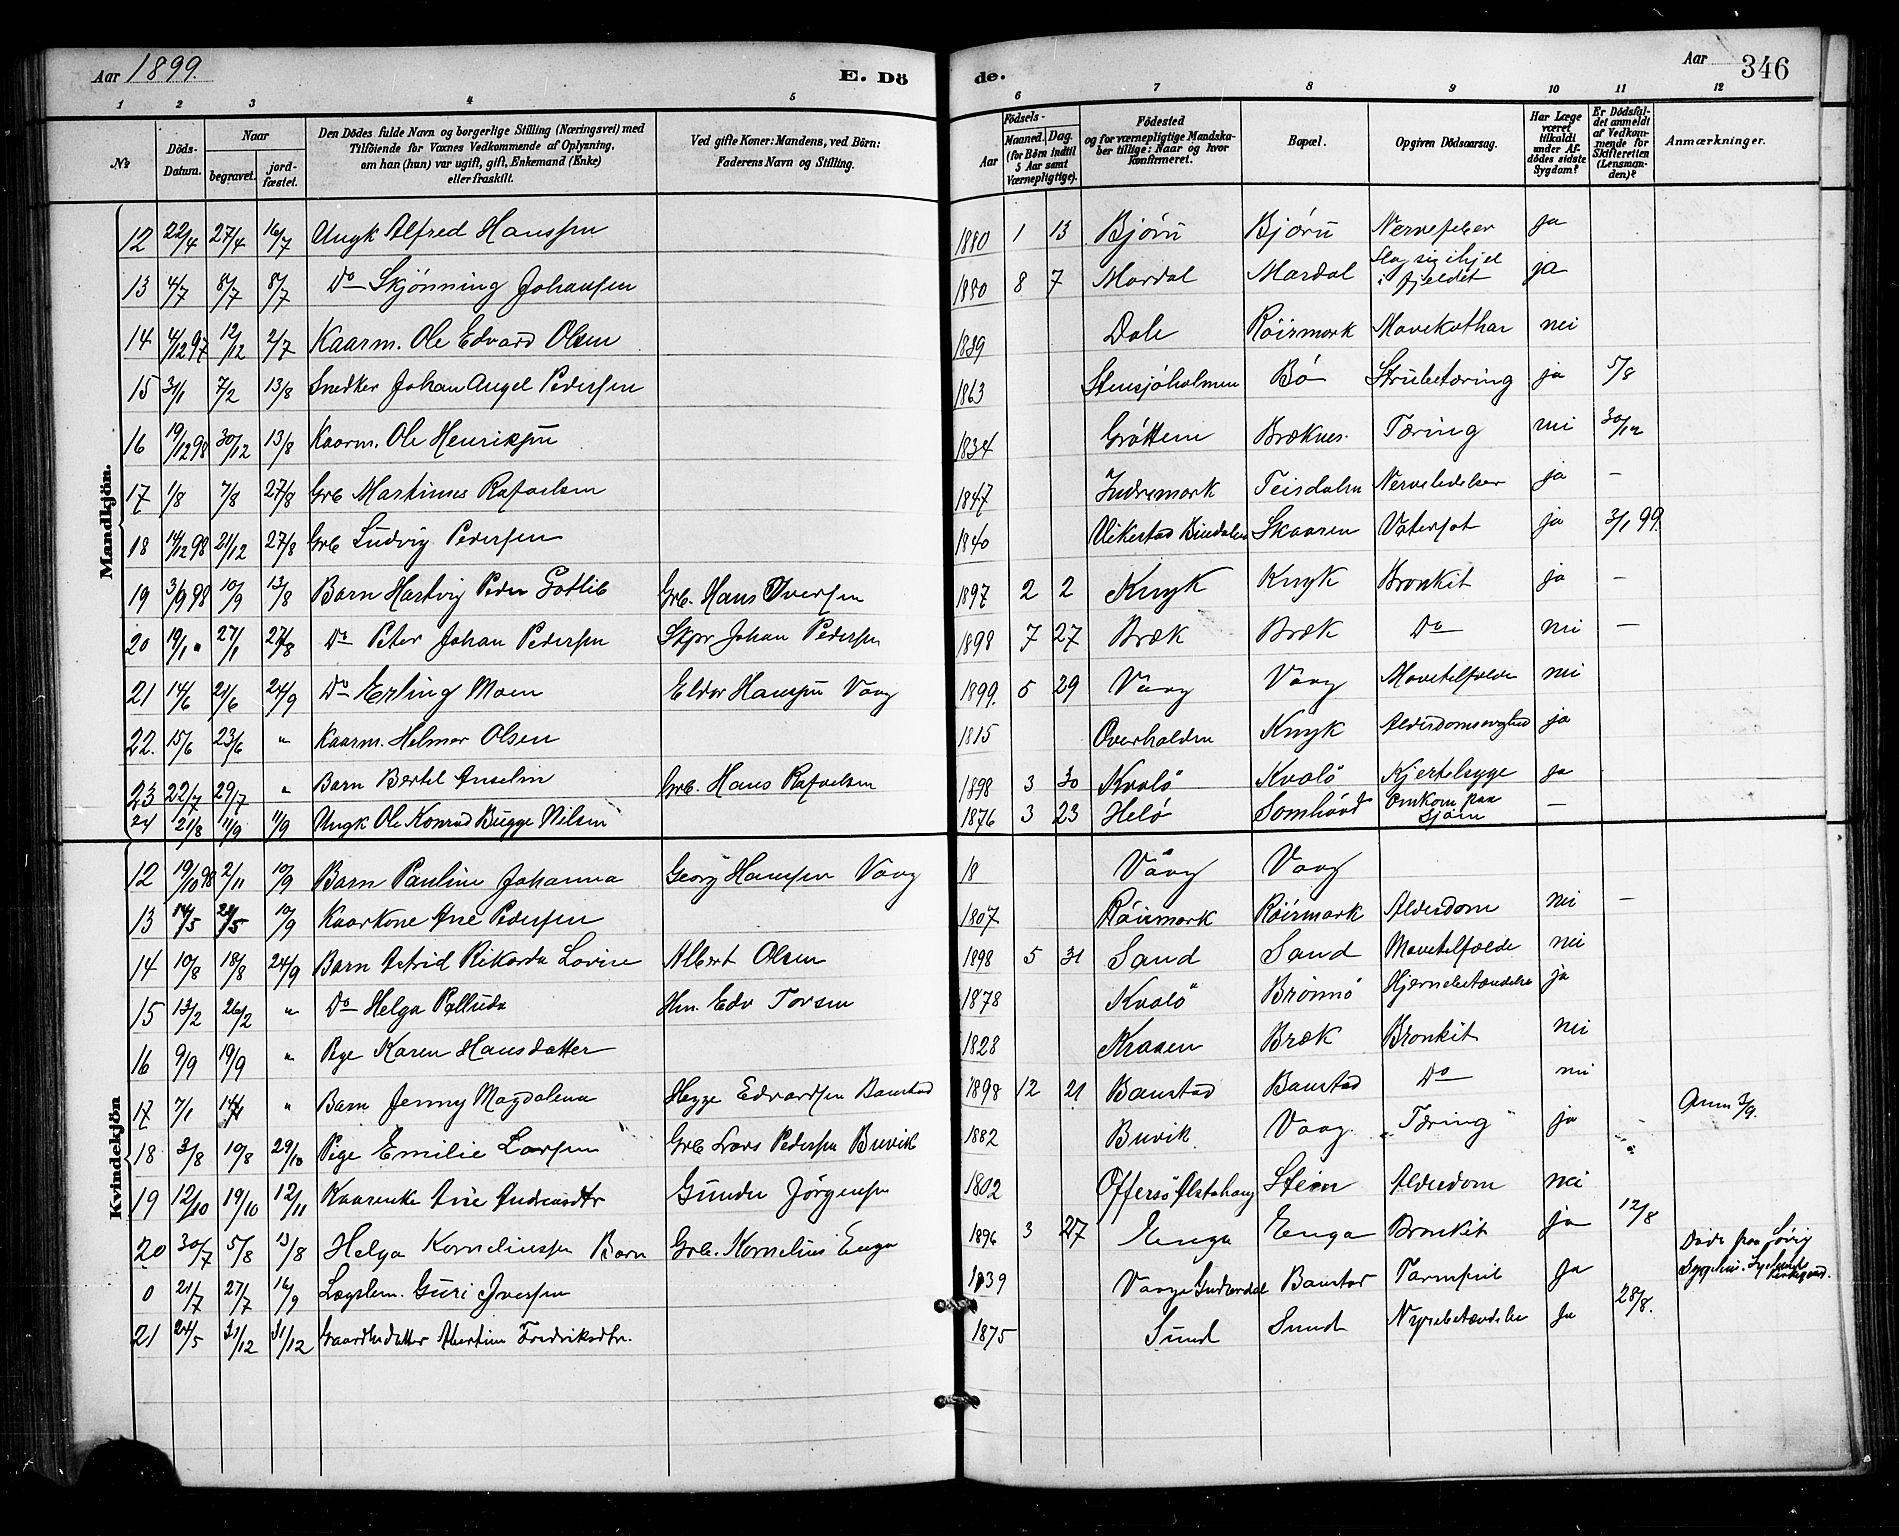 Aar 1899.
E. Dö
de.
Aar
346
1 2 3 4 5 6 7 8 9 10 11 12
№
Döds-Datum.
Naar
begravet.
jord-fæstet.
Den Dödes fulde Navn og borgerlige Stilling (Næringsvei) med Tilföiende for Voxnes Vedkommende af Oplysning, om han (hun) var ugift, gift, Enkemand (Enke) eller fraskilt.
Ved gifte Koner: Mandens, ved Börn: Faderens Navn og Stilling.
Födsels-
Aar
Maaned. Dag.
(for Börn indtil 5 Aar samt Værnepligtige).
Födested og for værnepligtige Mandskaber tillige: Naar og hvor konfirmeret.
Bopæl.
Opgiven Dödsaarsag.
Har Læge været tilkaldt under Afdödes sidste Sygdom?
Er Dödsfaldet anmeldt af Vedkommende for Skifteretten (Lensmanden)?
Anmærkninger.
Mandkjön.
12 22/4 27/4 16/7 Ungk Alfred Hanssen 1880 1 13 Bjørn Bjørn Nervefeber ja
13 4/7 8/7 8/7 Do Skjønning Johansen 1880 8 7 Mardal Mardal Slog sig ihjel i fjeldet ja
14 4/12 97 12/12 2/7 Kaarm. Ole Edvard Olsen 1839 Dale Röirmark Mavekathar nei
15 31/1 7/2 13/8 Snedker Johan Angel Pedersen 1863 Stensjöholmen Bö Strubetæring ja 5/8
16 19/12 98 30/12 13/8 Kaarm. Ole Henriksen 1834 Gröttem Bræknes. Tæring nei 30/12
17 1/8 7/8 27/8 Grb Martinus Rafaelsen 1847 Indremark Teisdalen Nervelidelser ja –
18 14/12 98 21/12 27/8 Grb Ludvig Pedersen 1840 Vikestad Bindalen Skaaren Vatersot ja 3/1 99.
19 3/9 98 10/9 13/8 Barn Hartvig Peder Gotlib Grb. Hans Iversen 1897 2 2 Knyk Knyk Bronkit ja –
20 19/1 " 27/1 27/8 Do Peter Johan Pedersen Skpr Johan Pedersen 1898 7 27 Bræk Bræk Do nei –
21 14/6 21/6 24/9 Do Erling Moen Eldor Hansen Vaag 1899. 5 29 Vaag Vaag Mavetilfælde nei
22. 15/6 23/6 " Kaarm. Helmer Olsen 1815 Overhalden Knyk Alderdomssvaghed ja
23 22/7 29/7 " Barn Bertel Anselin Grb. Hans Rafaelsen 1898 3 30 Kvalö Kvalö Kjertelsyge ja
24 21/8 11/9 11/9 Ungk Ole Konrad Bugge Nilsen 1876 3 23 Helö Somhöved Omkom paa Sjöen –
Kvindekjön
12 19/10 98 2/11 10/9 Barn Pauline Johanna Georg Hansen Vaag 18 Vaag Vaag
13 14/5 24/5 10/9 Kaarkone Ane Pedersen 1807 Röirmark Röirmark Alderdom nei –
14 10/8 18/8 24/9 Barn Astrid Rikarda Lovise Albert Olsen 1898 5 31 Sand Sand Mavetilfælde nei
15 13/2 26/2 " Do Helga Palluda Hm. Edv Torsen 1878 Kvalö Brönnö Hjernebetændelse ja
16 9/9 19/9 " Pige Karen Hansdatter 1828 Kraaen Bræk Bronkit nei
17 7/1 14/1 " Barn Jenny Magdalena Hegge Edvardsen Baustad 1898 12 21 Baustad Baustad Do nei
18 3/8 10/8 29/10 Pige Emilie Larsen Grb Lars Pedersen Buvik 1882 Buvik. Vaag. "Tæring" ja Anm 3/9.
19 12/10 19/10 12/11 Kaarenke Ane Andreasdtr Gunder Jörgensen 1802 Offersö Alstahaug Steen Alderdom nei
20 30/7 5/8 13/8 Helga Korneliussen Barn Grb. Kornelius Enga 1896 3 27 Enga Enga Bronkit ja 12/8
0 21/7 27/7 16/9 Lægslem. Guri Iversen 1839 Vaage Gudvandal Baustad Tarmfeil Ja Döde paa Søvig Sygehus.
21 24/5 31/12 31/12 Gaardbrdatter Albertine Fredriksdtr. 1875 Sund Sund Nyrebetændelse Ja 28/8.